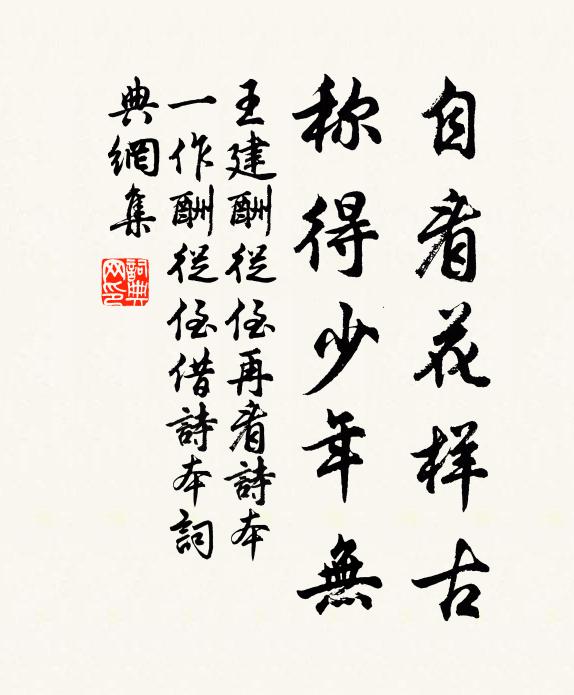 自看花样古
称得少年無
王建酬從侄再看詩本
一作酬從侄借詩本詞
典網集
詞典
网印